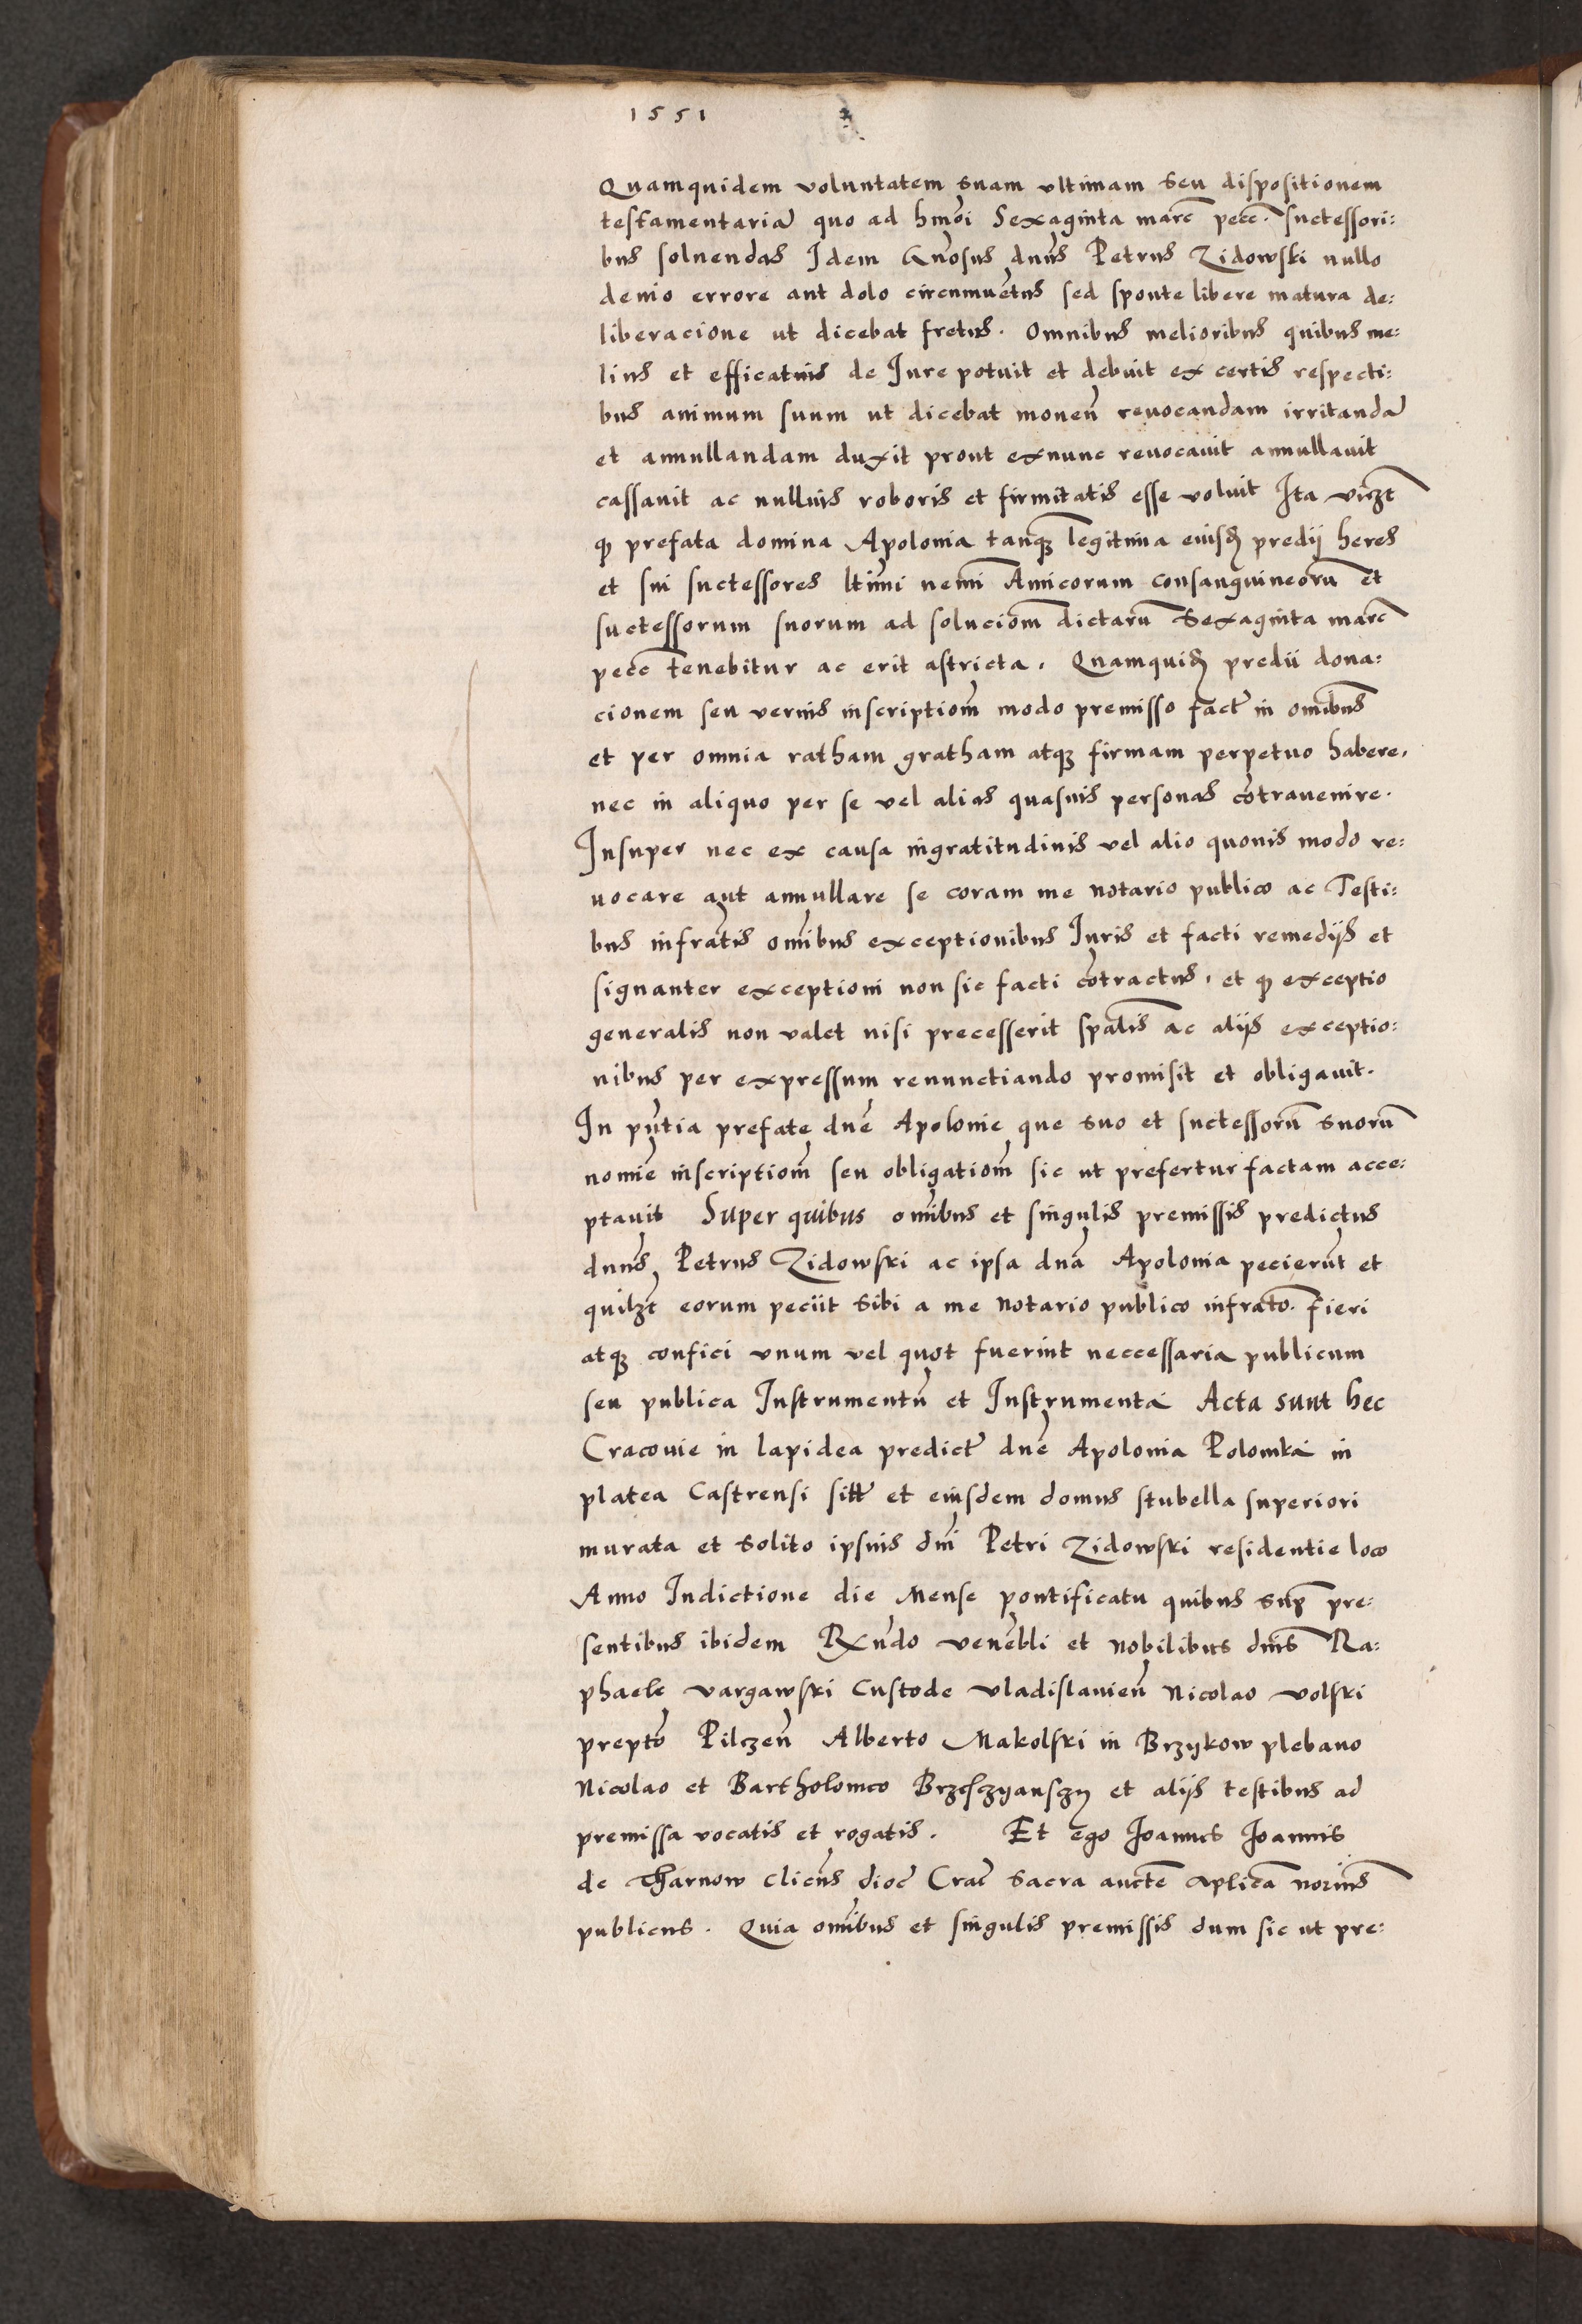 1551
Quamquidem voluntatem suam vltimam seu dispositionem
testamentariā quo ad hmōi Sexaginta marc̄ pecc̄. suctessori:
bus soluendas Idem Gn̄osus dnūs Petrus Zidowski nullo
demio errore aut dolo circumuētus sed sponte libere matura de:
liberacione ut dicebat fretus. Omnibus melioribus quibus me:
lius et efficatius de Iure potuit et debuit ex certis respecti:
bus animum suum ut dicebat monen̄ reuocandam irritandā
et annullandam duxit prout exnunc reuocauit annullauit
cassauit ac nullius roboris et firmitatis esse voluit Ita viczt̄
ꝙ prefata domina Apolonia tanqꝫ legitima eiusꝺ predij heres
et sui suctessores ltimi nemi Amicorum consanguineorū et
suctessorum suorum ad soluciom̄ dictarū Sexaginta marc̄
pecc̄ tenebitur ac erit astricta. Quamquiꝺ predii dona:
cionem seu verius inscriptiom̄ modo premisso fact̄ in om̄ibus
et per omnia ratham gratham atqꝫ firmam perpetuo habere.
nec in aliquo per se vel alias quasuis personas cōtrauenire.
Insuper nec ex causa ingratitudinis vel alio quouis modo re:
uocare aut annullare se coram me notario publico ac Testi:
bus infrat̄is om̄ibus exceptionibus Iuris et facti remedijs et
signanter exceptioni non sic facti cōtractus. et ꝙ exceptio
generalis non valet nisi precesserit sp̄alis ac alijs exceptio:
nibus per expressum renunctiando promisit et obligauit.
In pn̄tia prefate dnē Apolonie que suo et suctessorū suorū
nomīe inscriptiom̄ seu obligatiom̄ sic ut prefertur factam acce:
ptauit Super quibus om̄ibus et singulis premissis predictus
dnūs Petrus Zidowski ac ipsa dnā Apolonia pecierūt et
quilꝫt eorum peciit sibi a me notario publico infrat̄o. fieri
atqꝫ confici vnum vel quot fuerint neccessaria publicum
seu publica Instrumentū et Instrumenta Acta sunt hec
Cracouie in lapidea predict̄ dnē Apolonia Polomka in
platea Castrensi sitt̄ et eiusdem domus stubella superiori
murata et solito ipsius dnī Petri Zidowski residentie loco
Anno Indictione die Mense pontificatu quibus sup̄ pre:
sentibus ibidem Rxn̄do venēbli et nobilibus dnīs Ra:
phaele Vargawski Custode Vladislauien̄ Nicolao Volski
preptō Pilczen̄ Alberto Makolski in Brzykow plebano
Nicolao et Bartholomeo et alijs testibus ad
premissa vocatis et rogatis. Et ego Joannes Joannis
de Tharnow clicūs dioc̄ Crac̄ Sacra auctē aplicā norīus
publicus. Quia om̄ibus et singulis premissis dum sic ut pre: